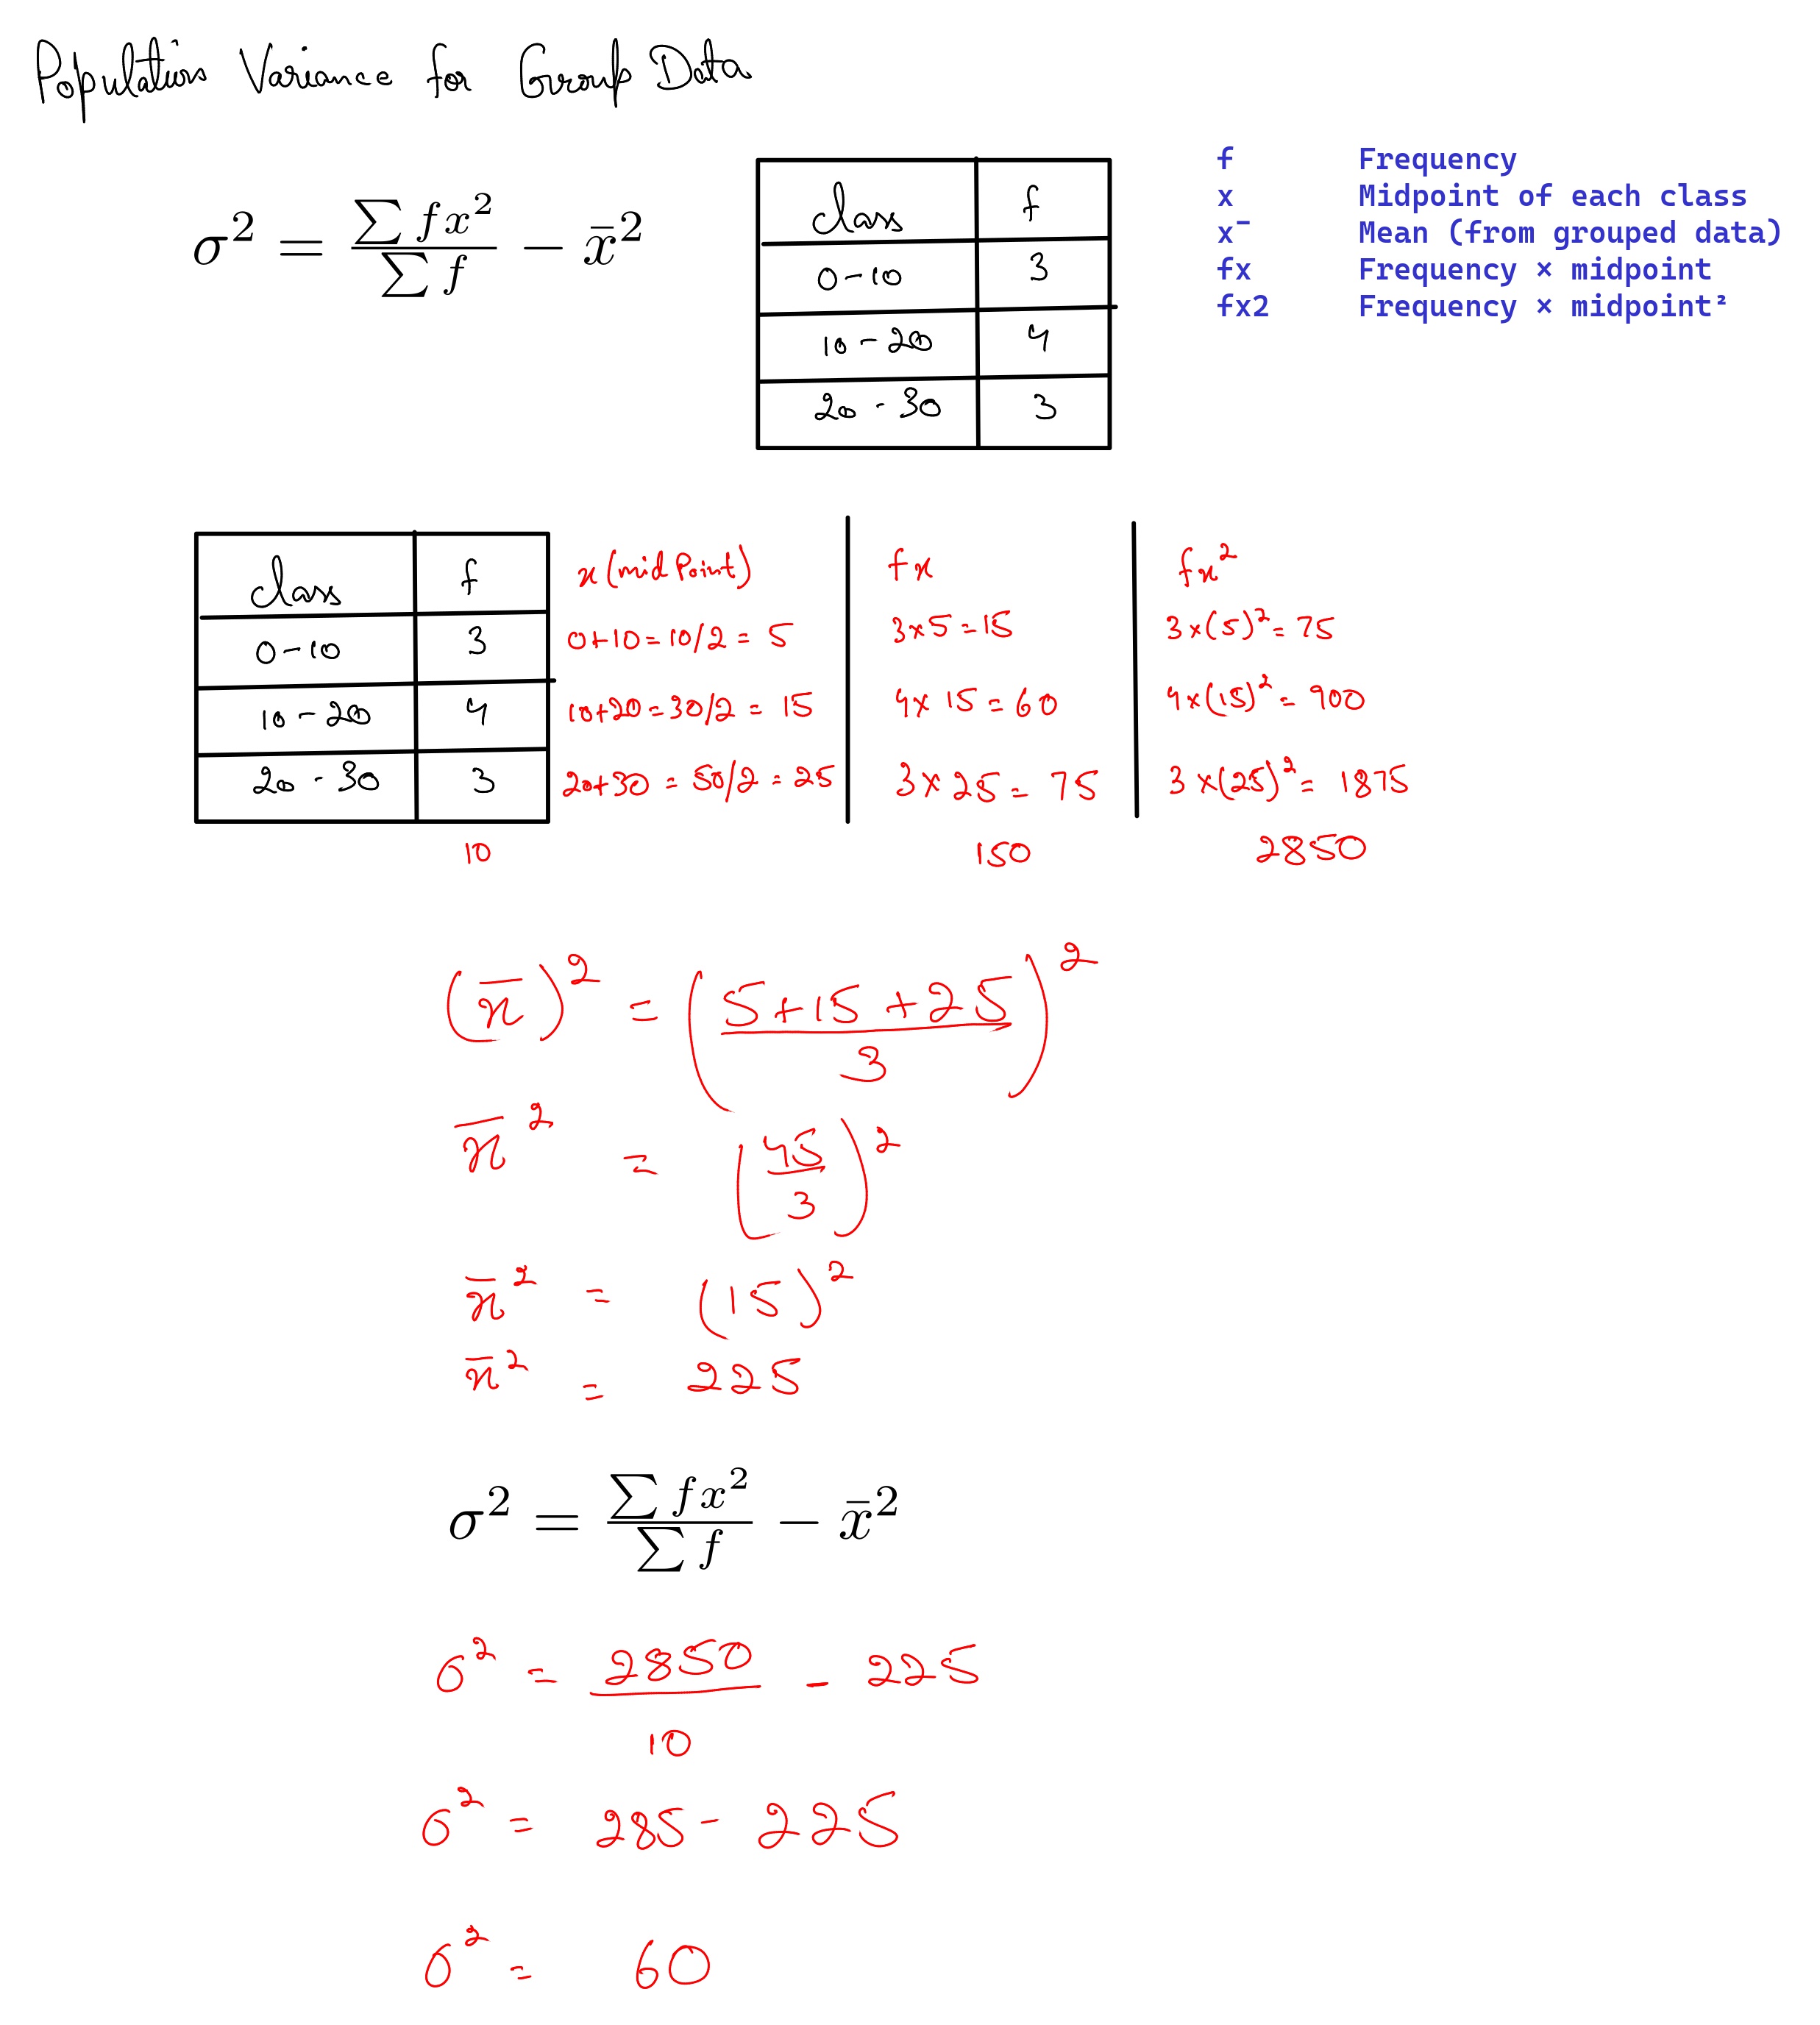 Population Variance for Group Data
σ² = ∑fx² / ∑f − x̄²
class f
0-10 3
10-20 4
20-30 3
f Frequency
x Midpoint of each class
x¯ Mean (from grouped data)
fx Frequency × midpoint
fx2 Frequency × midpoint²
class f x (mid Point) fx fx²
0-10 3 0+10=10/2=5 3×5=15 3×(5)²=75
10-20 4 10+20=30/2=15 4×15=60 4×(15)²=900
20-30 3 20+30=50/2=25 3×25=75 3×(25)²=1875
10 150 2850
(x̄)² = ((5+15+25)/3)²
x̄² = (45/3)²
x̄² = (15)²
x̄² = 225
σ² = ∑fx² / ∑f − x̄²
σ² = 2850/10 - 225
σ² = 285 - 225
σ² = 60